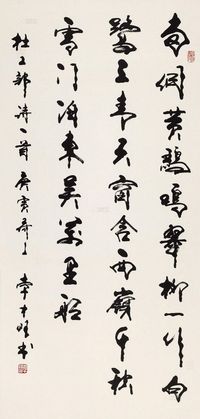 兩個黃鸝鳴翠柳一行白
鷺上青天窗含西嶺千秋
雪門泊東吳萬里船
杜工部詩一首庚寅 李才旺書